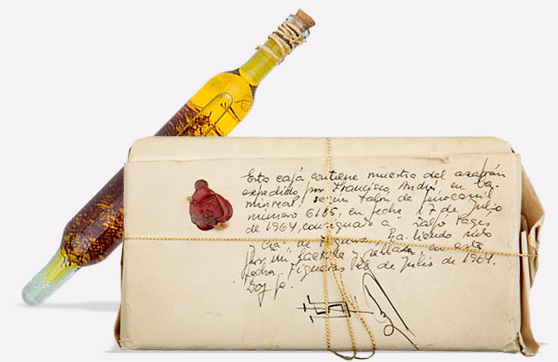 Esta caja contiene muestra del azafrán
expedido por Francisco Andrí en Ca-
minreal, según talón de ferrocarril
número 6165, en fecha 17 de Julio
de 1964, consignado a
y Cía, de Figueras. Ha sido
por mí lacrada y sellada en esta
fecha. Figueras de Julio de 1964.
Doy fe.